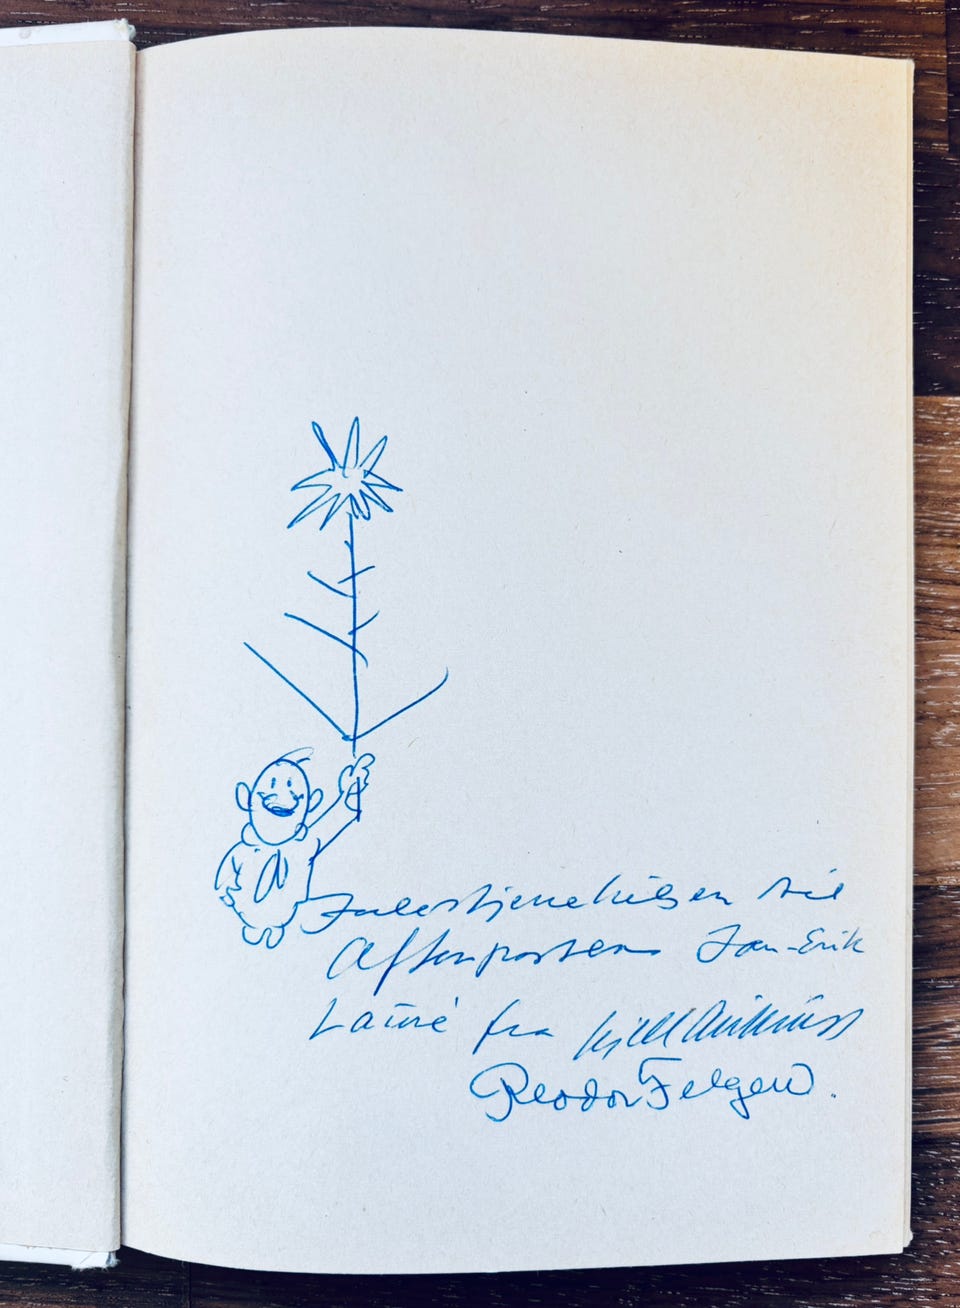 Julestjernehilsen til
Aftenpostens Jan-Erik
Laure' fra Kjell Aukrust
Reodor Felgen.